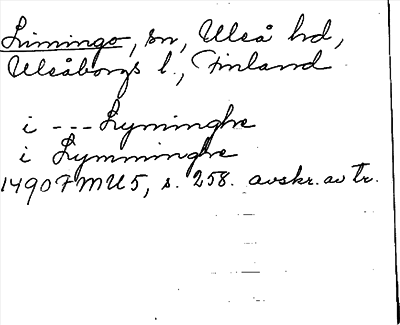 Limingo, sn, Uleå hd,
Uleåborgs l., Finland
i --- Lyminghe
i Lymminghe
1490 FMU 5, s. 258. avskr. av tr.